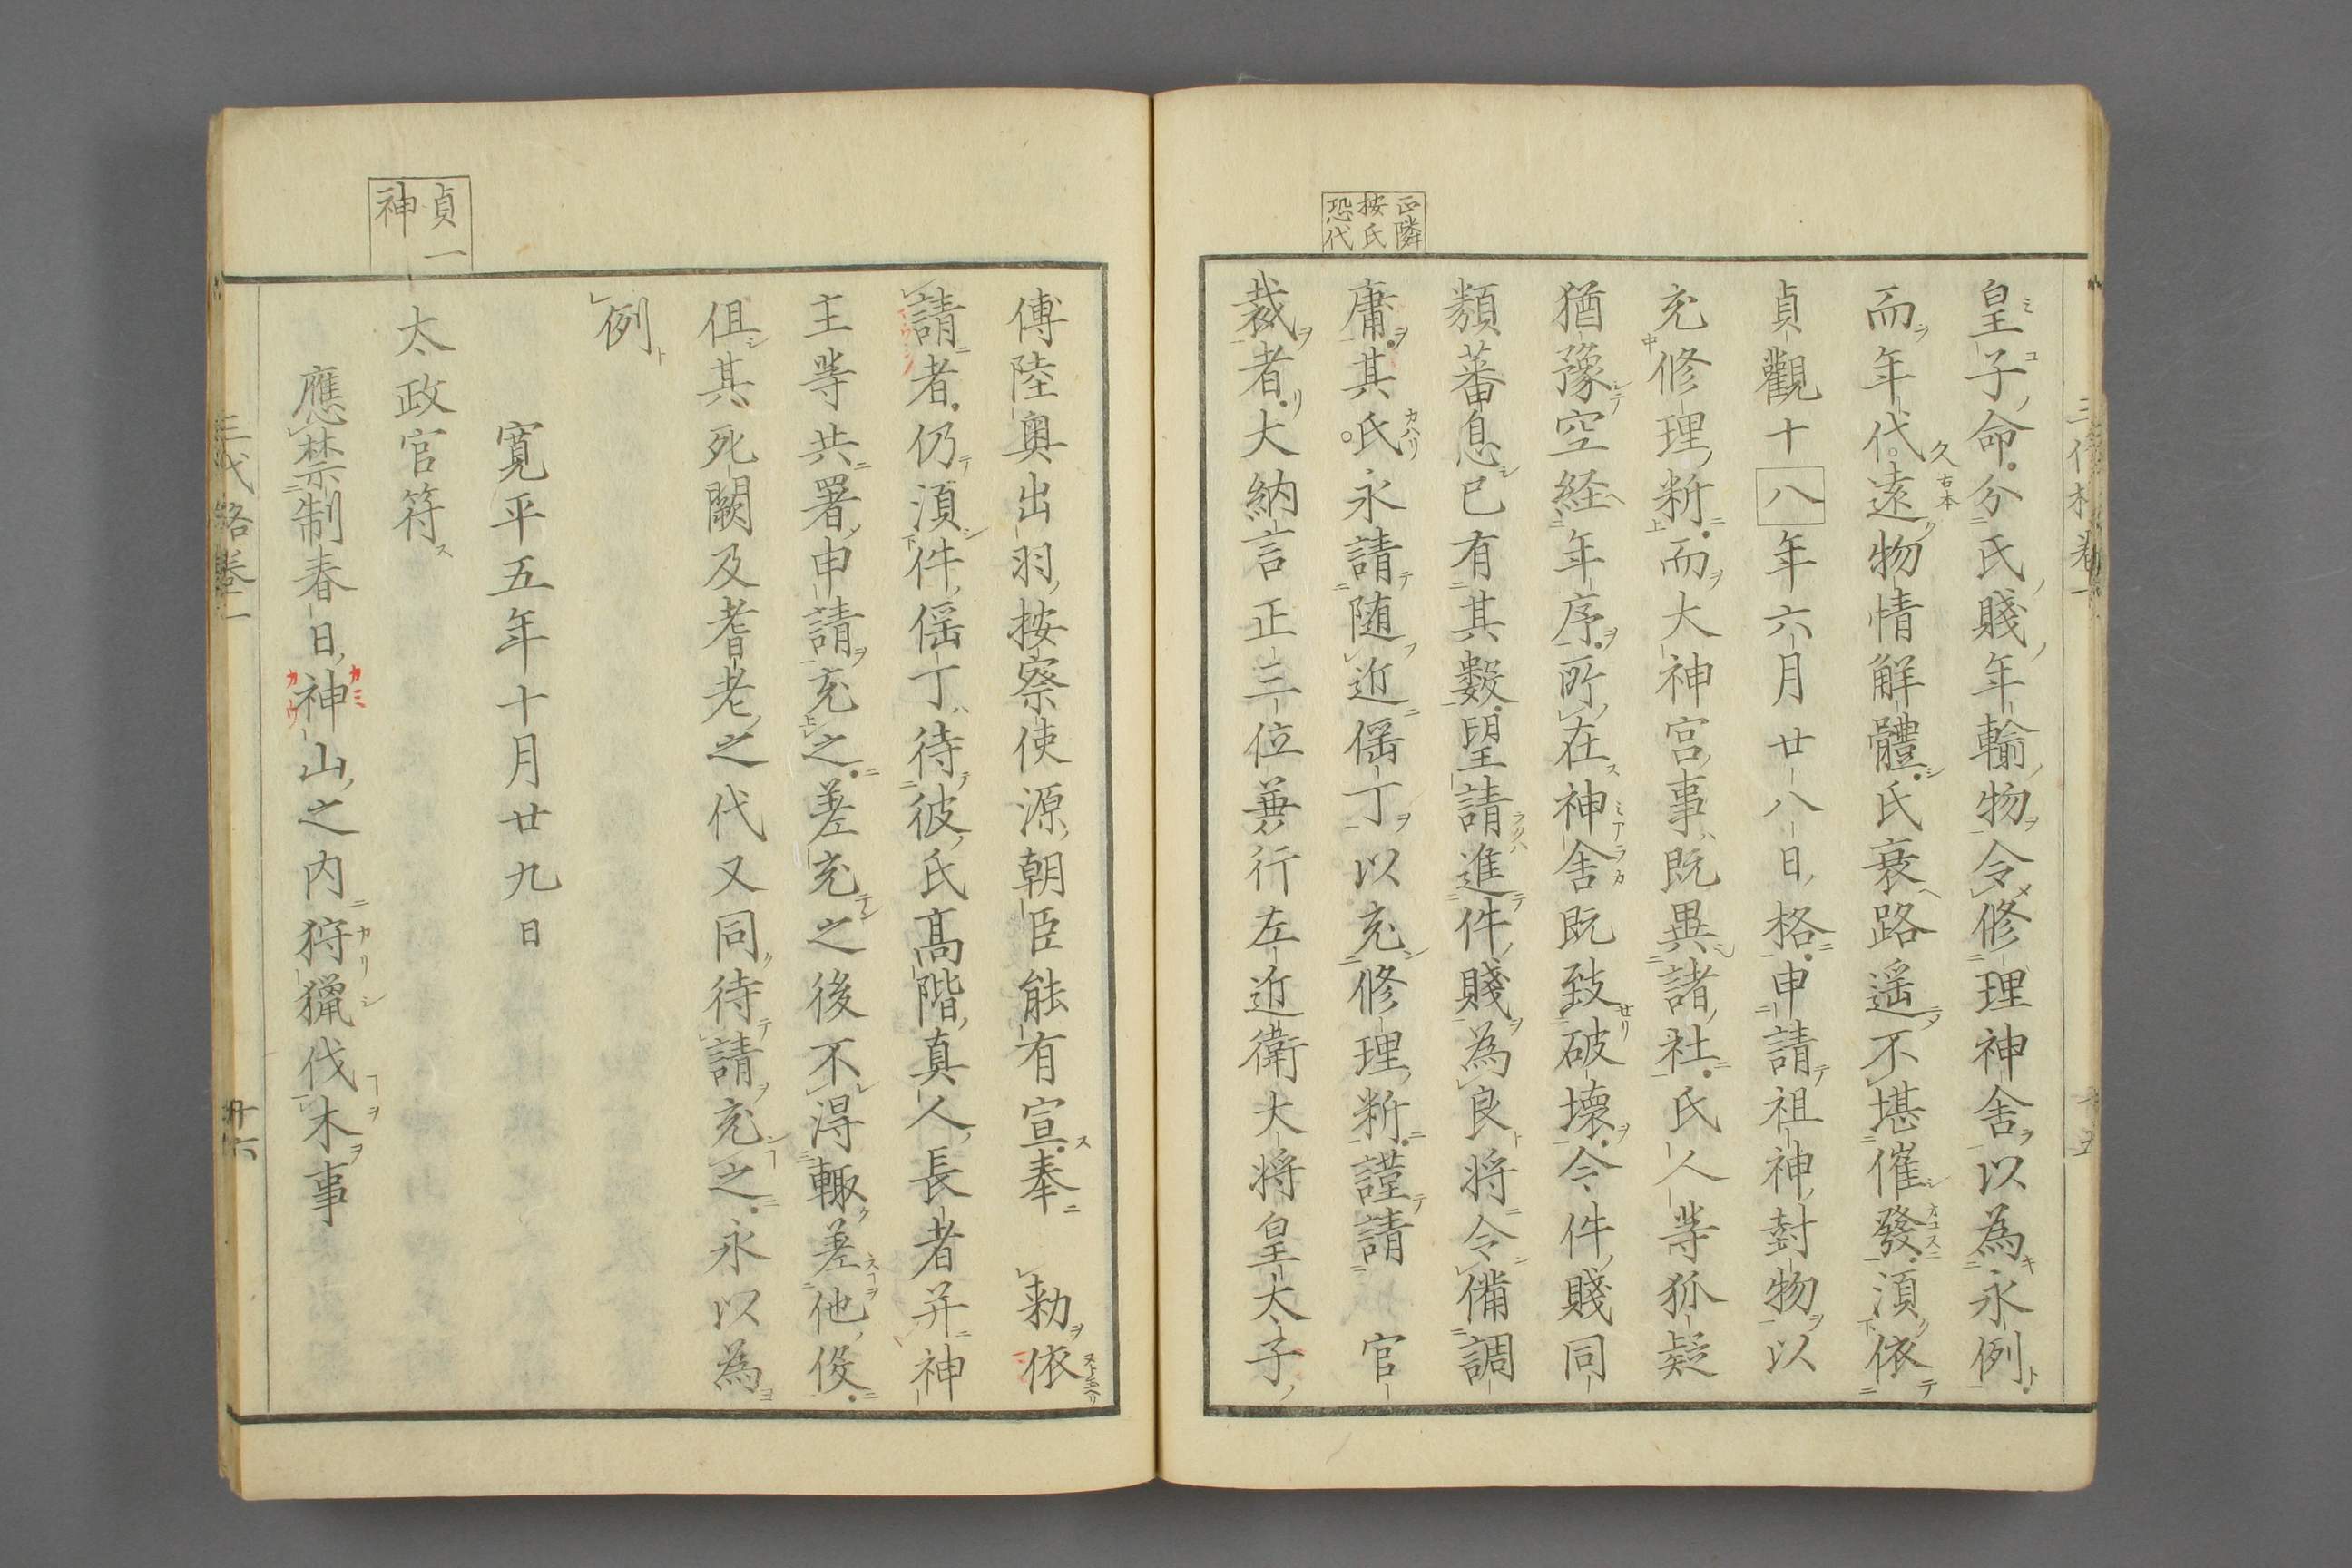 正隣
按氏
恐代
皇子命分氏賤年輸物令修理神舎以為永例
而年代遠物情解體氏衰路遥不堪催發湏依
久古本
貞觀十八年六月廿八日格申請祖神封物以
充修理新而大神宮事既異諸社氏人等狐疑
猶豫空経年序所在神舎既致破壞今件賤同
類蕃息已有其數望請進件賤為良将令備調
庸其氏永請随近傜丁以充修理新謹請 官
裁者大納言正三位兼行左近衛大将皇太子
傅陸奥出羽按察使源朝臣能有宣奉 勅依
請者仍湏件傜丁待彼氏髙階真人長者并神
主等共署申請充之差充之後不得輙差他役
但其死闕及耆老之代又同待請充之永以為
例
寛平五年十月廿九日
貞一
神
太政官符
應禁制春日神山之内狩獵伐木事
三代格巻一